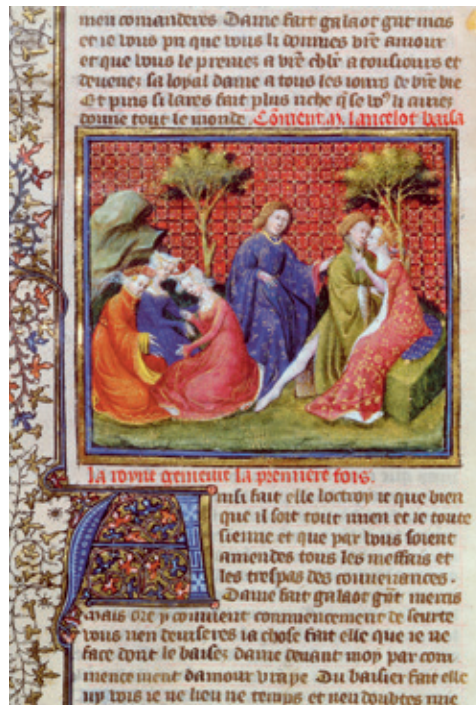 men comanderes Dame fait galaot grãt mcis
et ie vous pri que vous li donnes vr̃e amour
et que vous le preniez a vr̃e chlr̃ a tousiours et
deuenez sa loyal dame a tous les iours de vr̃e vie
Et puis si lares fait plus riche q̃ se vo⁹ li auiez
donne tout le monde. Cõment. M. lancelot baisa
la royne genieure la premiere fois.
Ainsi fait elle loctroy ie que bien
que il soit tout mien et ie toute
sienne et que par vous soient
amendes tous les meffais et
les trespas des conuenances.
Dame fait galaot grãt mercis
mais or y conuient commencement de seurte
vous nen deuiseres ia chose fait elle que ie ne
face dont le baises dame deuant moy par com
mencement damour vraye Du baisier fait elle
ny vois ie ne lieu ne temps et nen doubtes mie